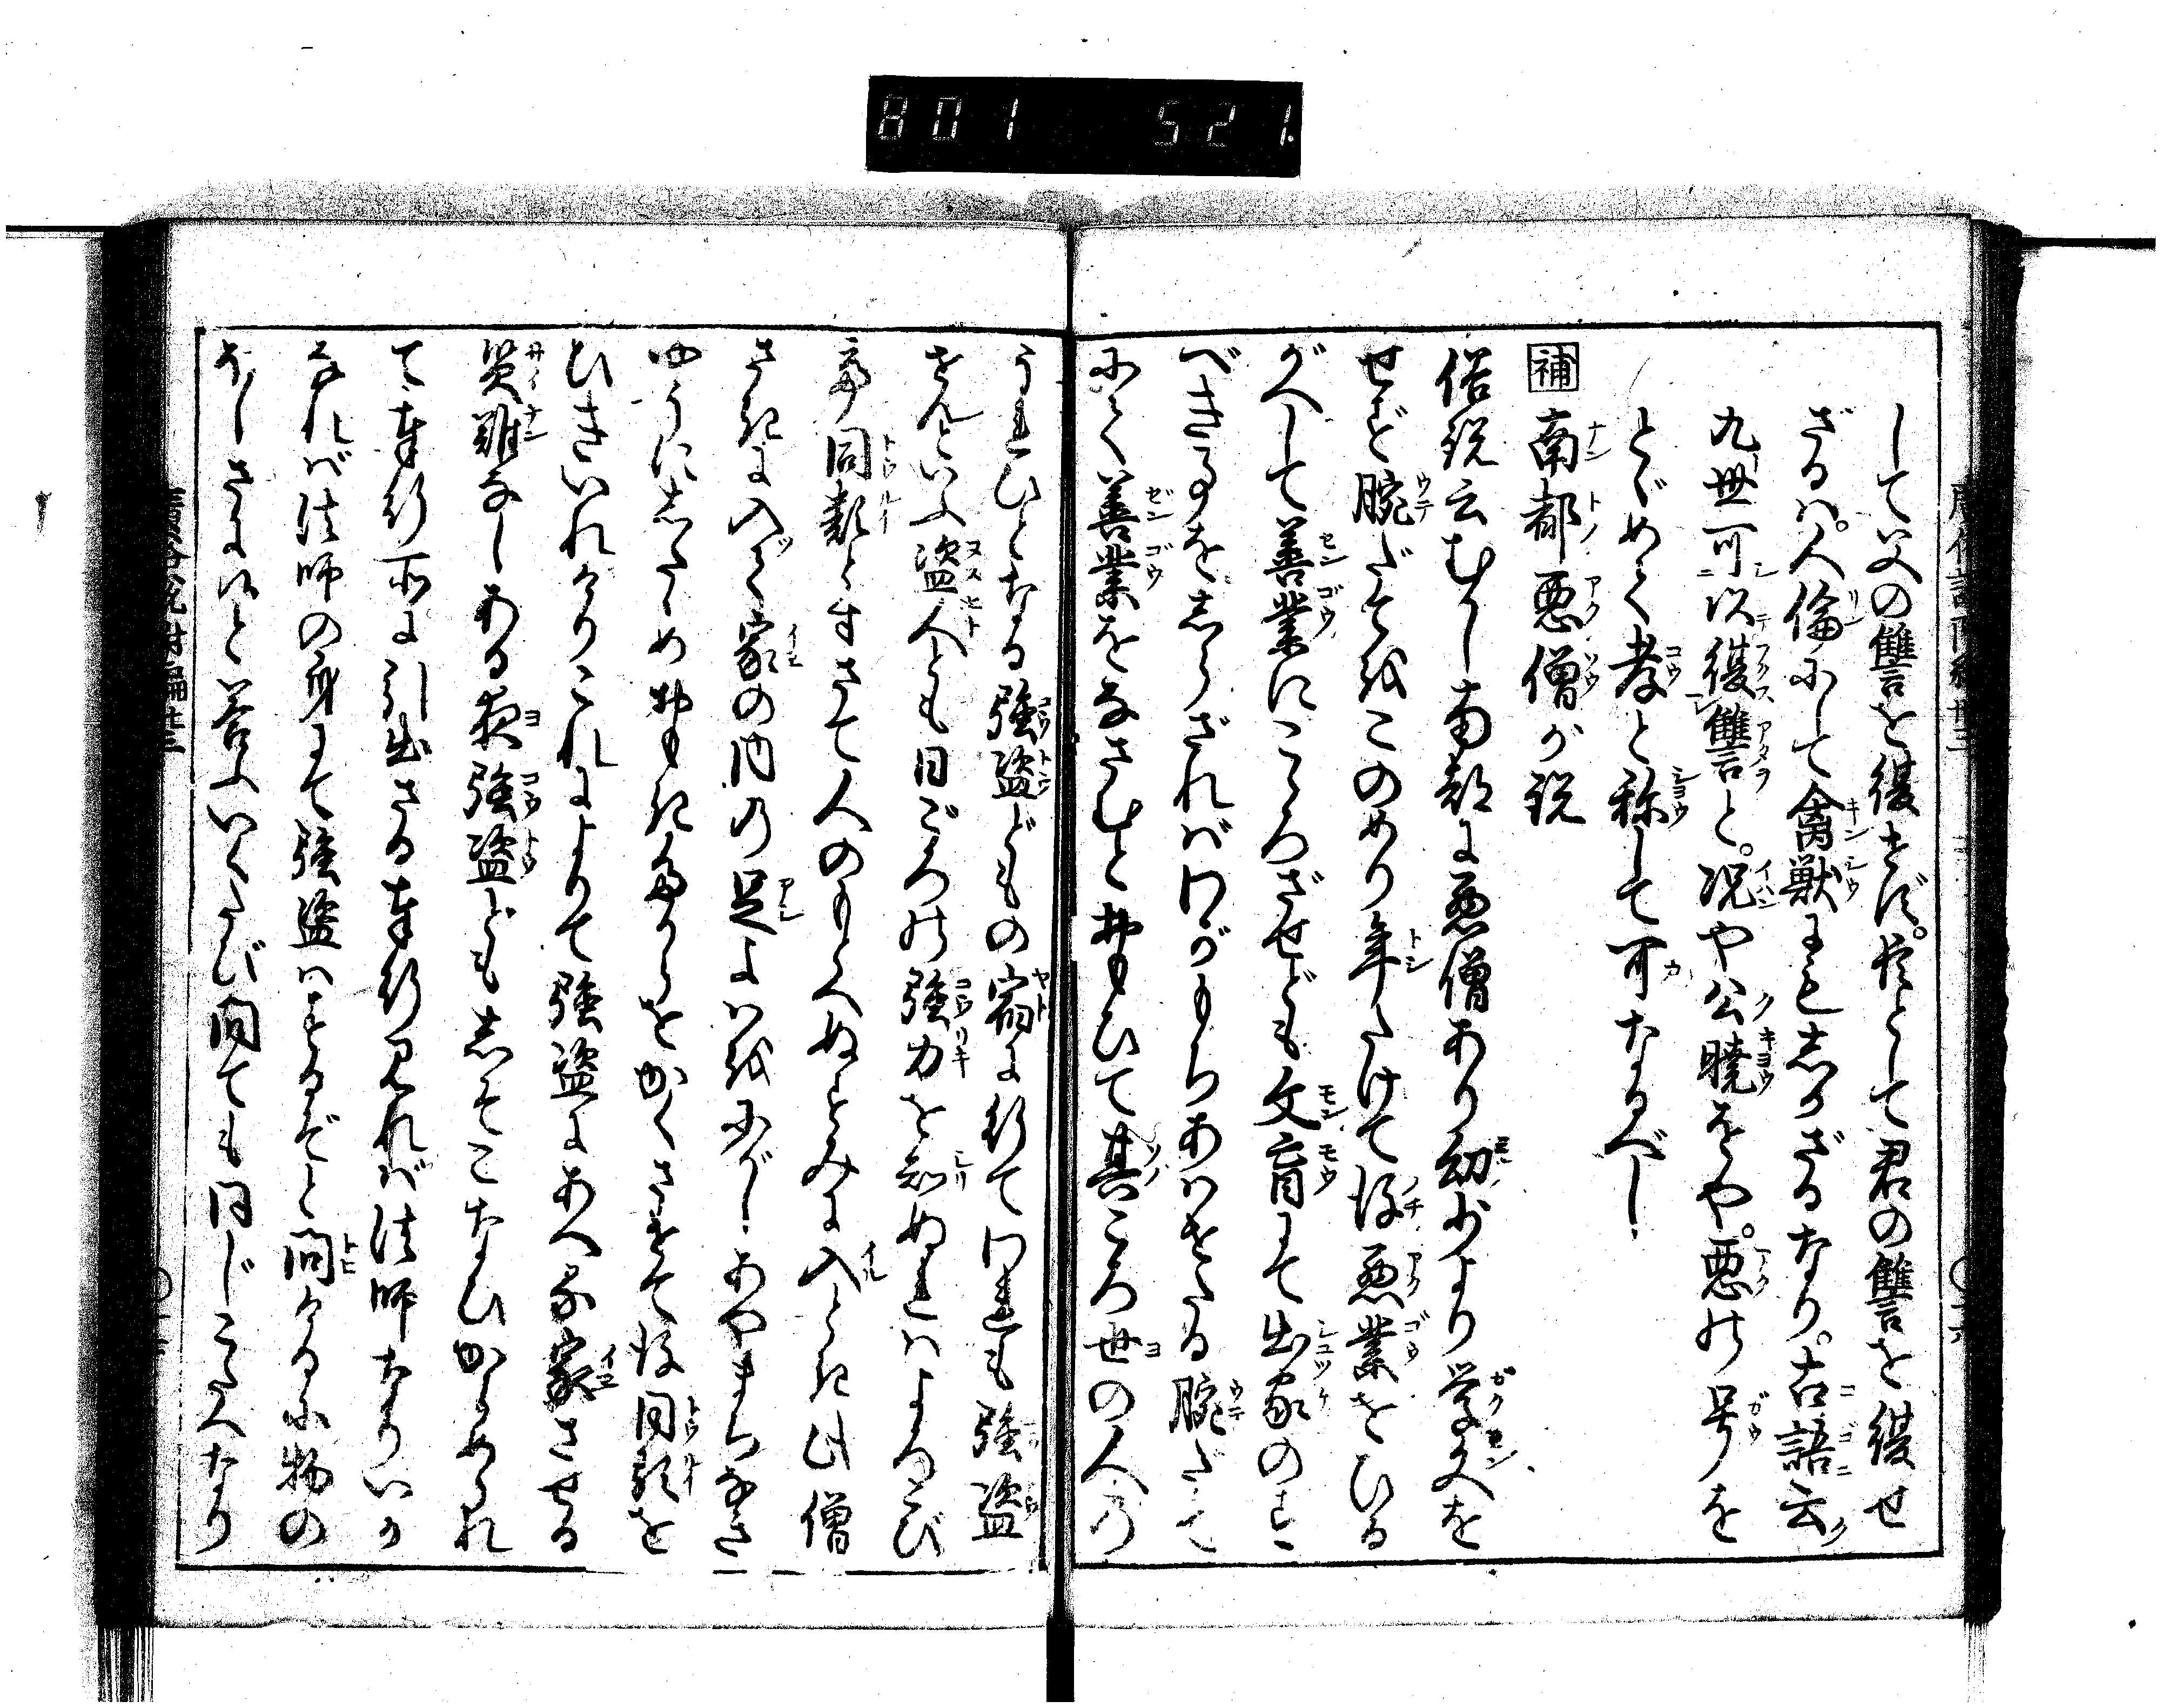 801 521
して父の讐を復せず。臣として君の讐を復せ
ざるハ。人倫にして禽獣にもしかざるなり。古語云
九世可以復讐と。况や公暁をや。悪の号を
とゞめて孝と称して可なるべし
補 南都悪僧が説
俗説云むかし南都に悪僧あり幼少より学文を
せず腕だてをこのめり年たけて後悪業をひる
がへして善業にこゝろざせども文盲にて出家のす
べきことをしらざればわがもちあはせたる腕だて
にて善業をなさむとおもひて其ころ世の人の
うれひとなる強盗どもの宿に行てわれも強盗
せんといふ盗人ども日ごろの強力を知ぬればよろこび
て同類とすさて人のもとへぬすみに入とき此僧
さきに入て家の内の足よはをにがしあやまちなき
ゆうにしたゝめおもきたからをかくさせて後同類を
ひきいれけりこれによりて強盗にあへる家させる
災難なしある夜強盗どもしそこなひからめられ
て奉行所に引出さる奉行見れば法師なりいか
なれば法師の身にて強盗はするぞと問けるに物の
ほしさに候と答ふいくたび問ても同じこたへなり